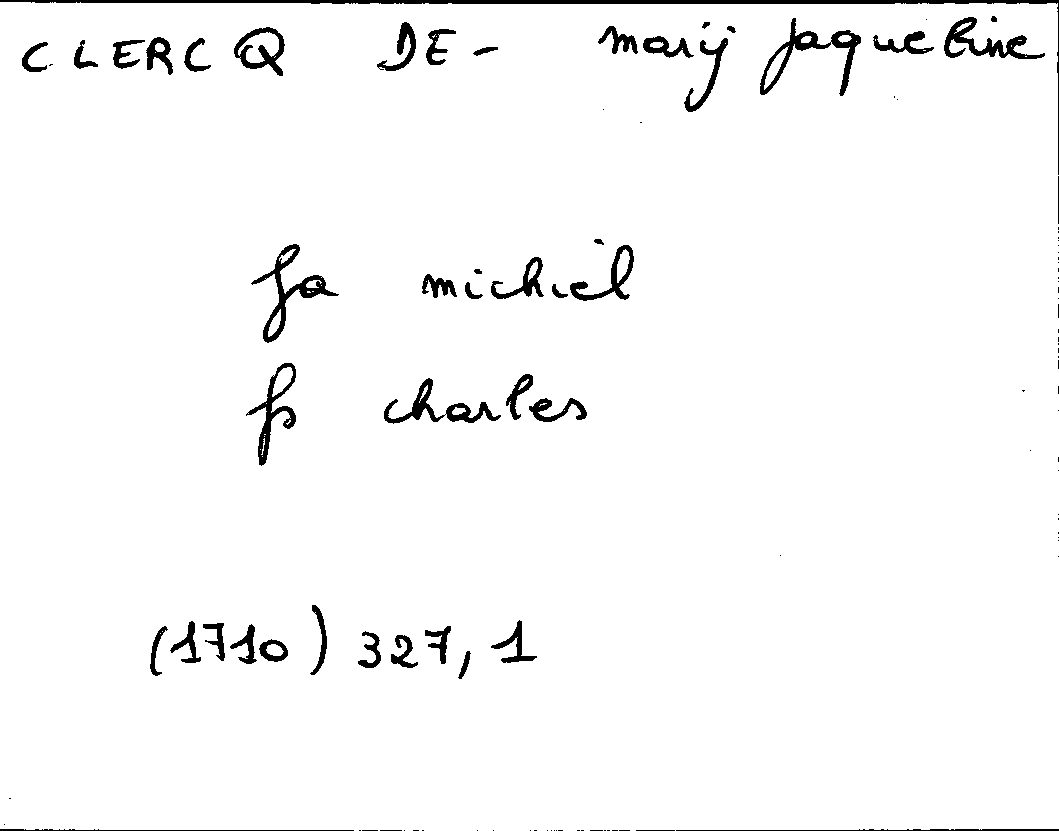 CLERCQ DE- marij jaqueline
fa michiel
fs charles
(1710) 327, 1